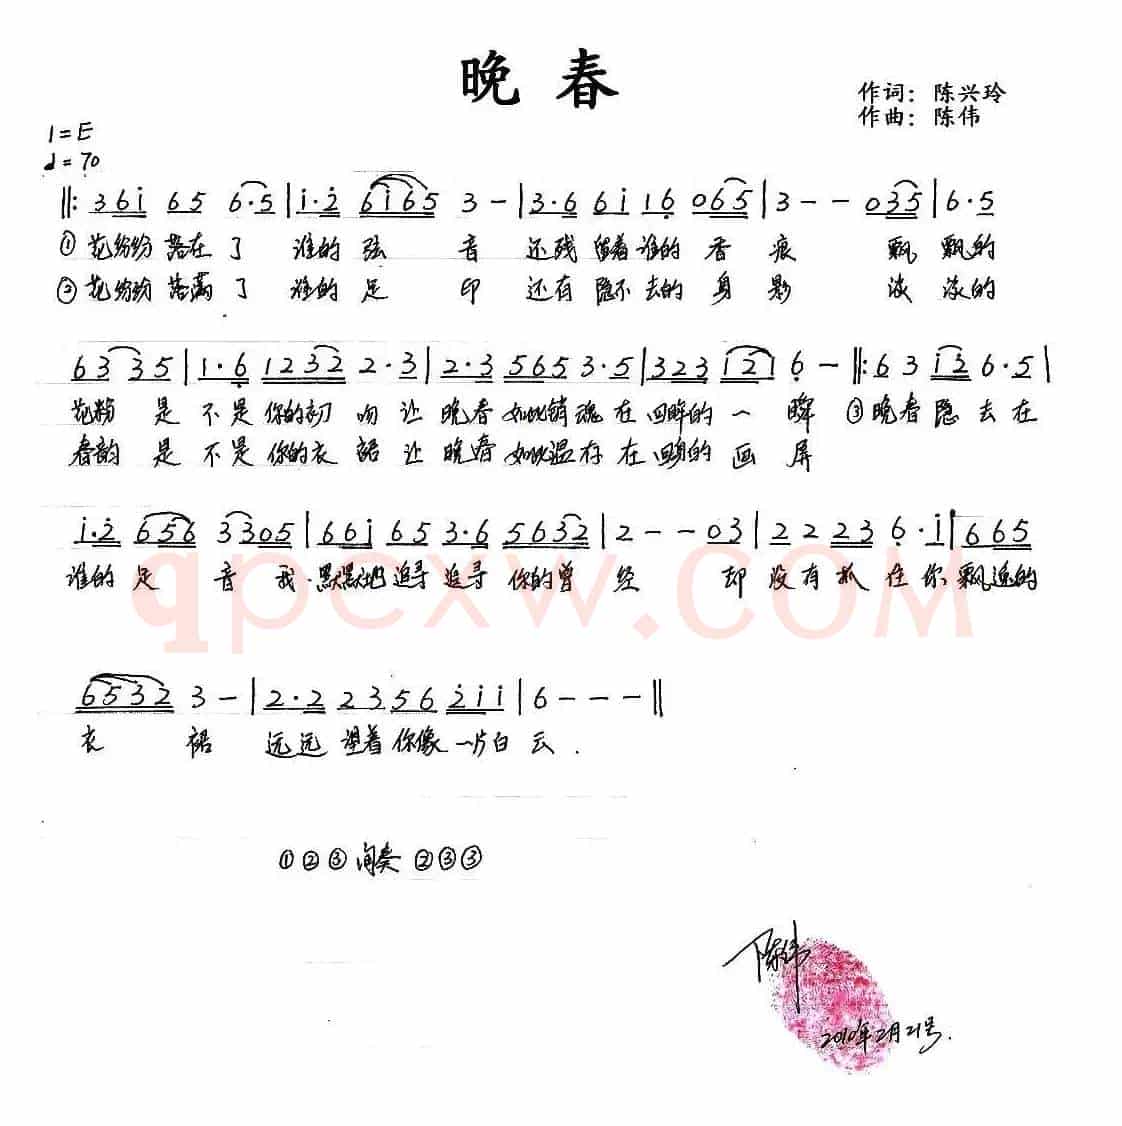 晚春
作词：陈兴玲
作曲：陈伟
1=E
♩=70
‖: 3 6 i 6 5 6·5 | i·2 6 i 6 5 3 - | 3·6 6 i 1 6 0 6 5 | 3 - - 0 3 5 | 6·5
①花纷纷落在了 谁的弦 音 还残留着谁的香痕 飘飘的
②花纷纷落满了 谁的足 印 还有隐不去的身影 淡淡的
6 3 3 5 | 1·6 1 2 3 2 2·3 | 2·3 5 6 5 3·5 | 3 2 3 i 2 i 6 - ‖: 6 3 i 3 6·5 |
花粉 是 不是你的初 吻让 晚春 如此销魂在回眸的一 瞬 ③晚春隐去在
春韵 是 不是你的衣 裙让 晚春 如此温存在回身的画 屏
i·2 6 5 6 3 3 0 5 | 6 6 i 6 5 3·6 5 6 3 2 | 2 - - 0 3 | 2 2 2 3 6·i | 6 6 5
谁的足 音 我 默默地追寻追寻 你的曾 经 却 没有抓 住你飘逸的
6 5 3 2 3 - | 2·2 2 3 5 6 2 i i | 6 - - - ‖
衣 裙 远远 望着你像一片白云.
①②③间奏②③③
陈伟
2010年2月21号.
qpcxw.COM